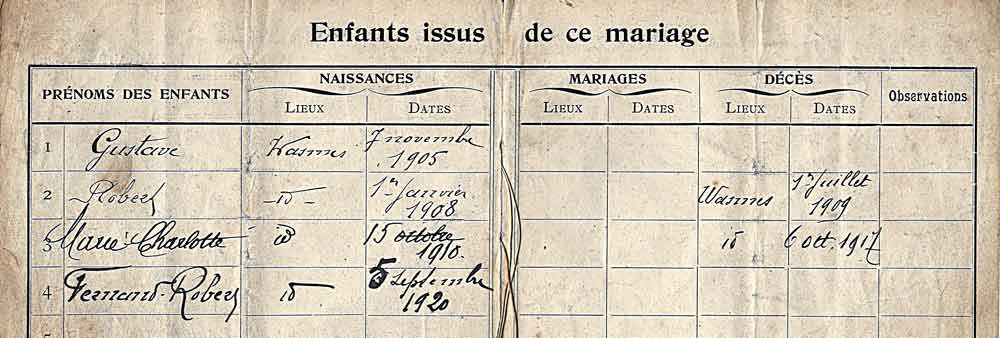 Enfants issus de ce mariage
PRÉNOMS DES ENFANTS
NAISSANCES
MARIAGES
DÉCÈS
Observations
LIEUX DATES LIEUX DATES LIEUX DATES
1 Gustave Wasmes 7 novembre 1905
2 Robert id 1er Janvier 1908 Wasmes 1er Juillet 1909
3 Marie-Charlotte id 15 octobre 1910. id 6 oct. 1917
4 Fernand-Robert id 5 septembre 1920